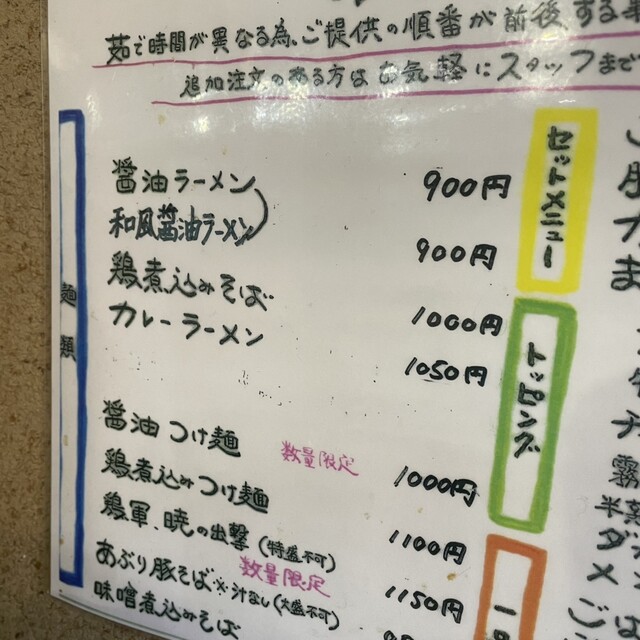 茹で時間が異なる為、ご提供の順番が前後する
追加注文のある方はお気軽にスタッフまで
麺類
醤油ラーメン 900円
和風醤油ラーメン 900円
鶏煮込みそば 1000円
カレーラーメン 1050円
醤油つけ麺 数量限定 1000円
鶏煮込みつけ麺 1100円
鶏軍、暁の出撃(特盛不可) 1150円
数量限定
あぶり豚そば※汁なし(大盛不可)
味噌煮込みそば
セットメニュー
トッピング
一品